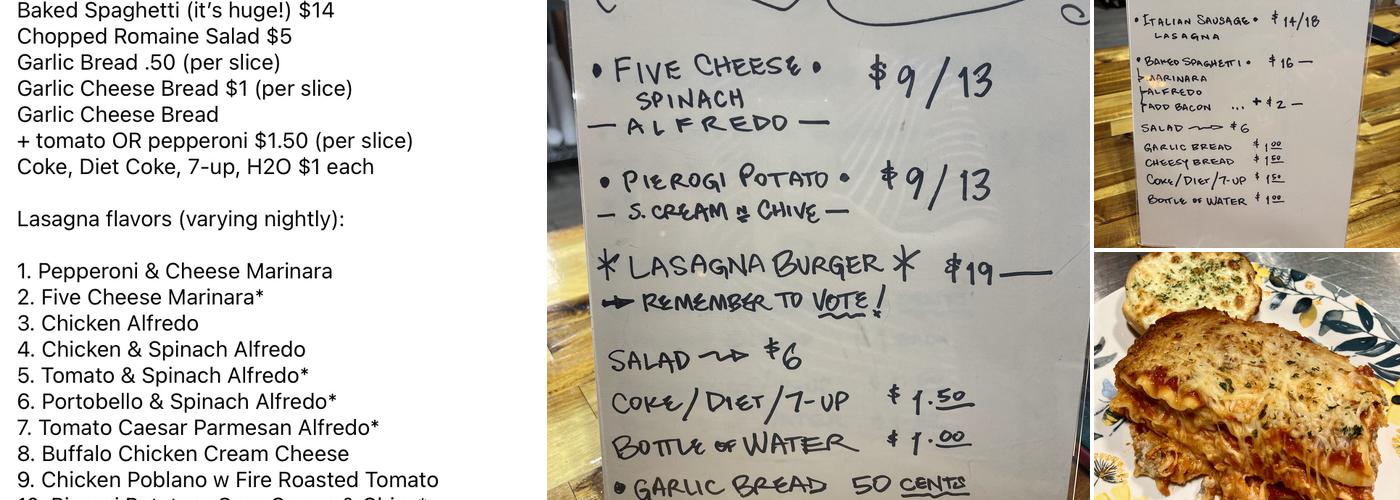 Baked Spaghetti (it's huge!) $14
Chopped Romaine Salad $5
Garlic Bread .50 (per slice)
Garlic Cheese Bread $1 (per slice)
Garlic Cheese Bread
+ tomato OR pepperoni $1.50 (per slice)
Coke, Diet Coke, 7-up, H2O $1 each
Lasagna flavors (varying nightly):
1. Pepperoni & Cheese Marinara
2. Five Cheese Marinara*
3. Chicken Alfredo
4. Chicken & Spinach Alfredo
5. Tomato & Spinach Alfredo*
6. Portobello & Spinach Alfredo*
7. Tomato Caesar Parmesan Alfredo*
8. Buffalo Chicken Cream Cheese
9. Chicken Poblano w Fire Roasted Tomato
• FIVE CHEESE • $9/13
SPINACH
— ALFREDO —
• PIEROGI POTATO • $9/13
— S. CREAM N CHIVE —
* LASAGNA BURGER * $19—
→ REMEMBER TO VOTE!
SALAD → $6
COKE/DIET/7-UP $1.50
BOTTLE OF WATER $1.00
• GARLIC BREAD 50 CENTS
• ITALIAN SAUSAGE • $14/18
LASAGNA
• BAKED SPAGHETTI • $16 —
MARINARA
ALFREDO
ADD BACON ... + $2 —
SALAD → $6
GARLIC BREAD $1.00
CHEESY BREAD $1.50
COKE/DIET/7-UP $1.50
BOTTLE OF WATER $1.00